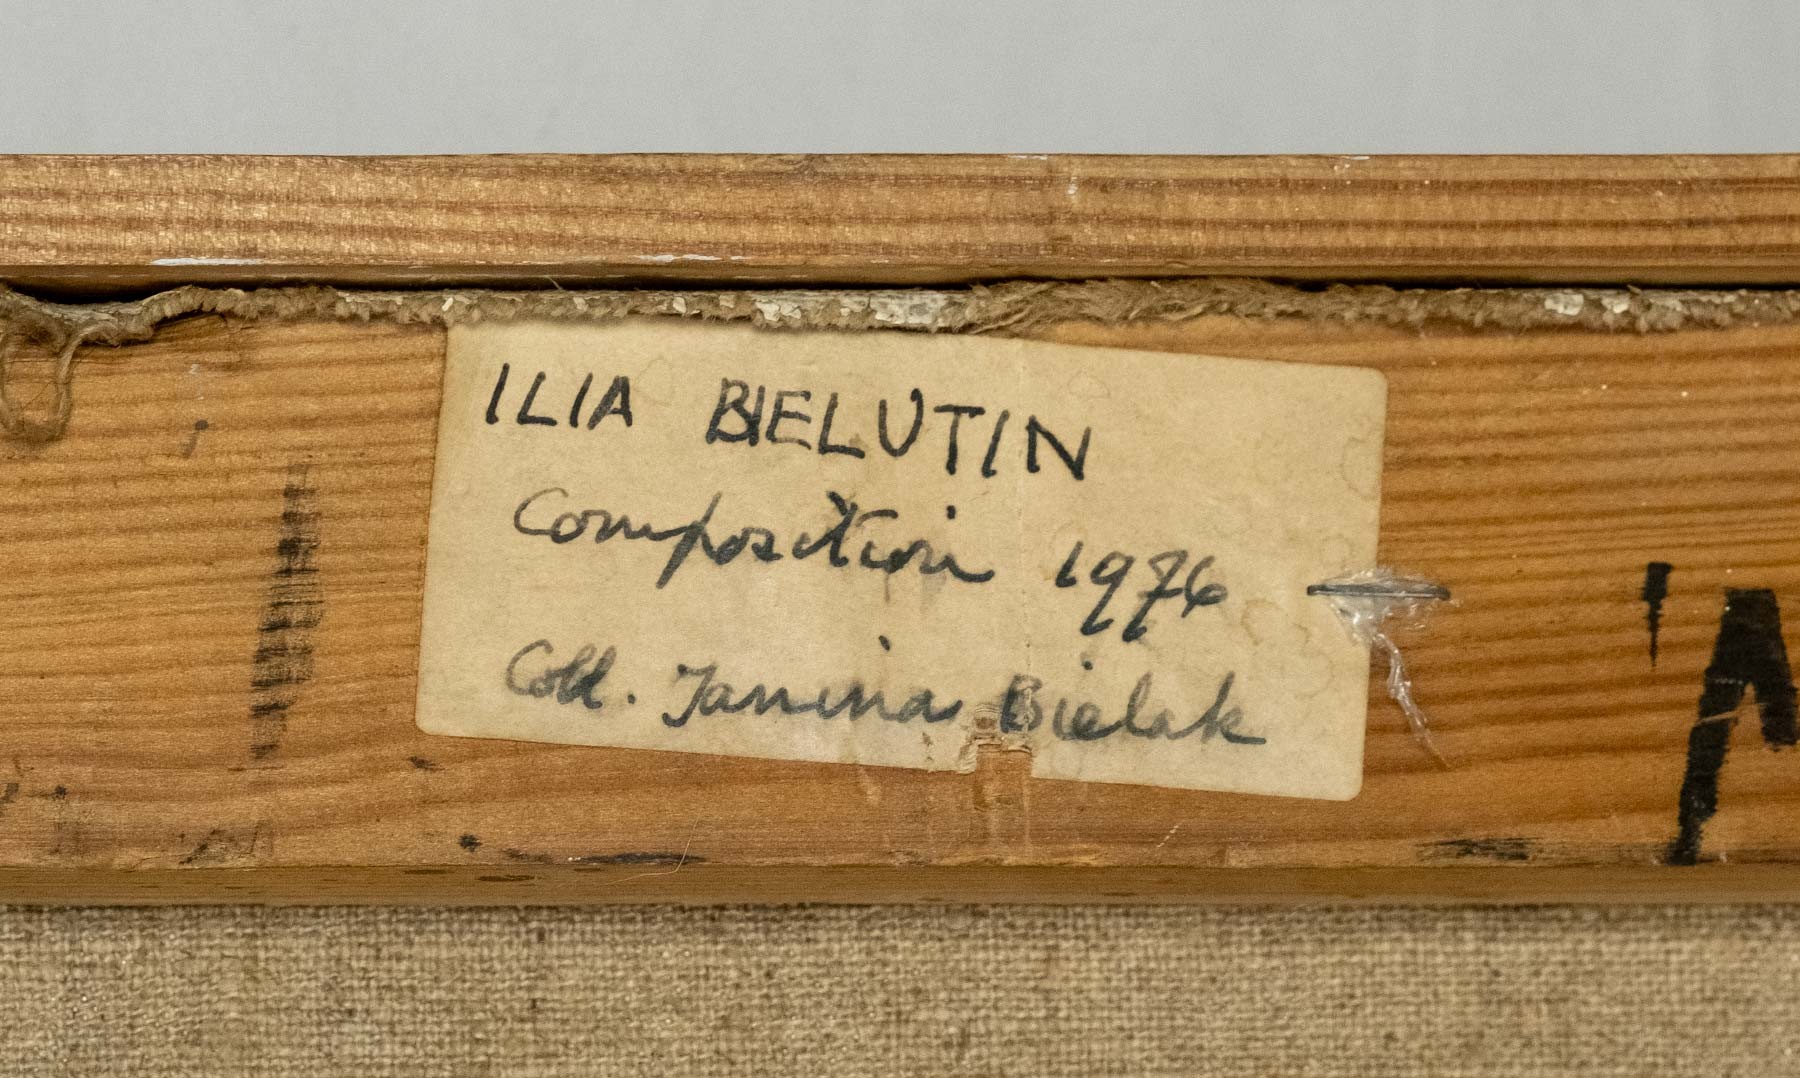 ILIA BIELUTIN
Composition 1976
Coll. Janina Bielak